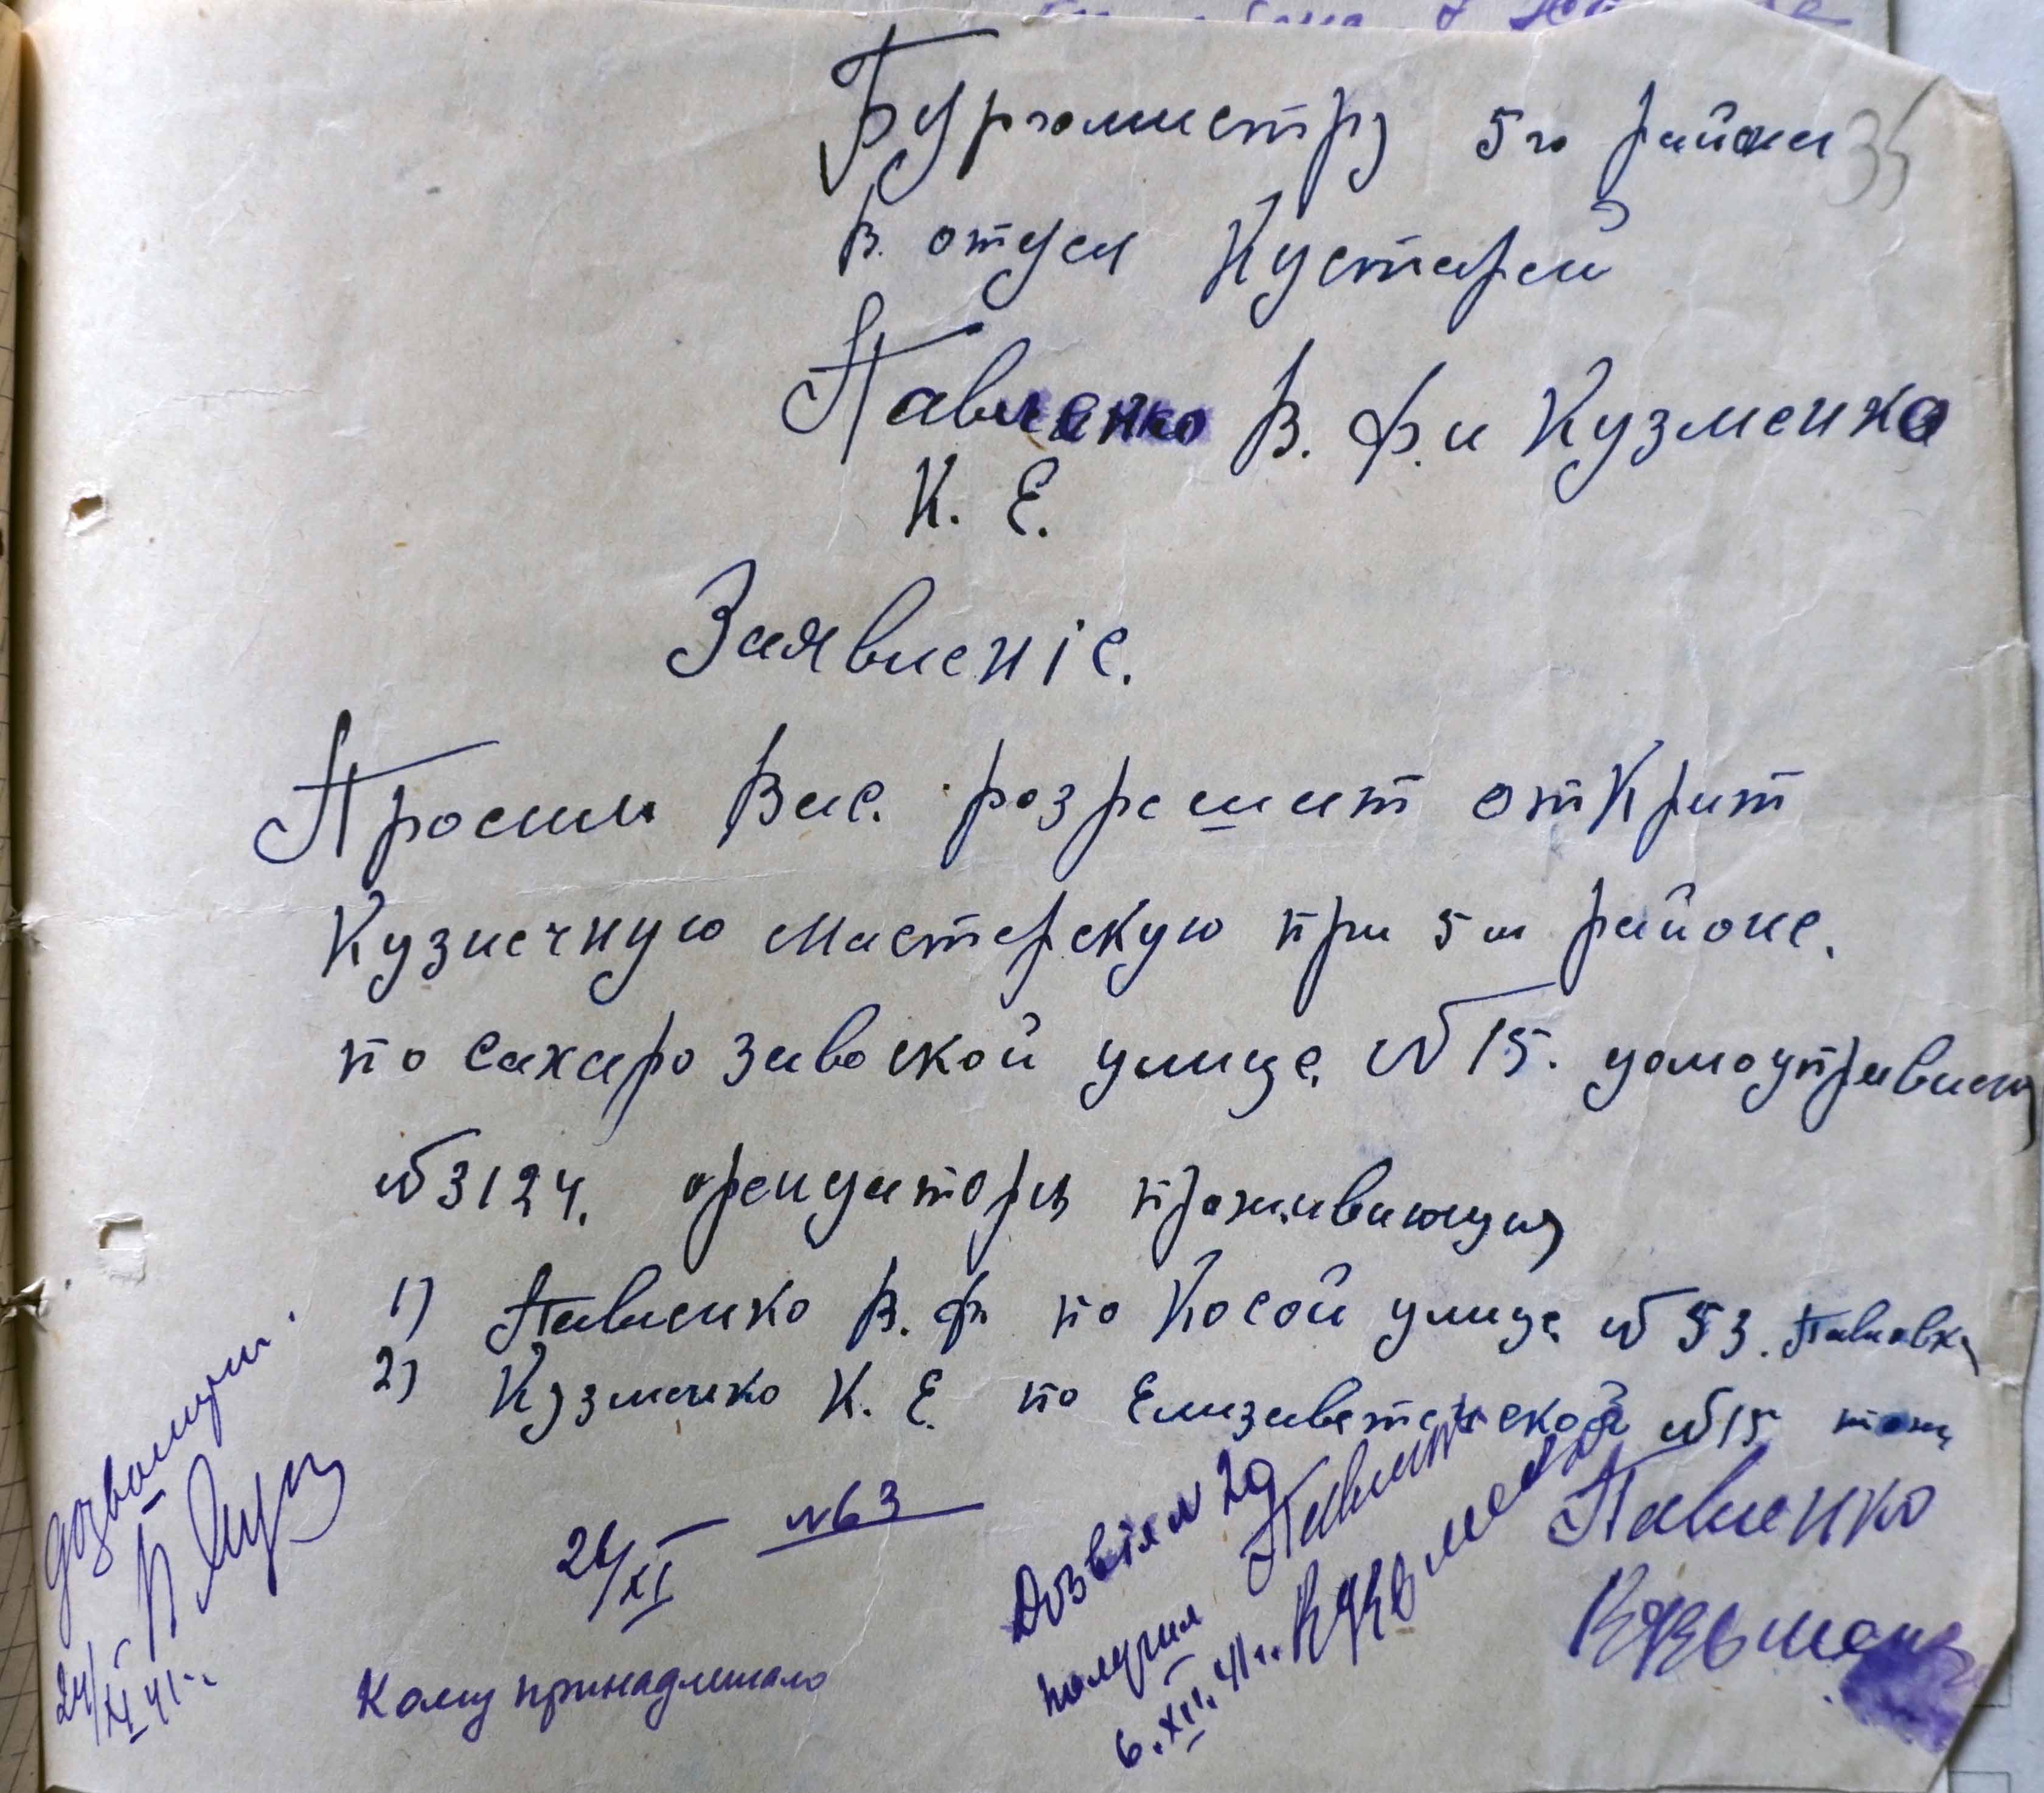 Бургомистру 5го района
35
В. отдел Кустарей
Павленко В. Ф. и Кузменко
К. Е.
Заявленіе.
Просим Вас. розрешит откКрит
Кузнечную мастерскую при 5м районе.
по сахаро заводской улице. №15. домоуправлен
№3124. орендаторы проживающия
1) Павленко В. Ф. по Косой улице №53. Павловка
2) Кузменко К. Е. по Елизаветенской №15 тож
дозволити.
24/XI 41 г.
26/XI №63
Кому принадлежало
Дозвіл № 29
получил Павленко
6.XII.41 г. Кузьменко
Павленко
Кузьменко